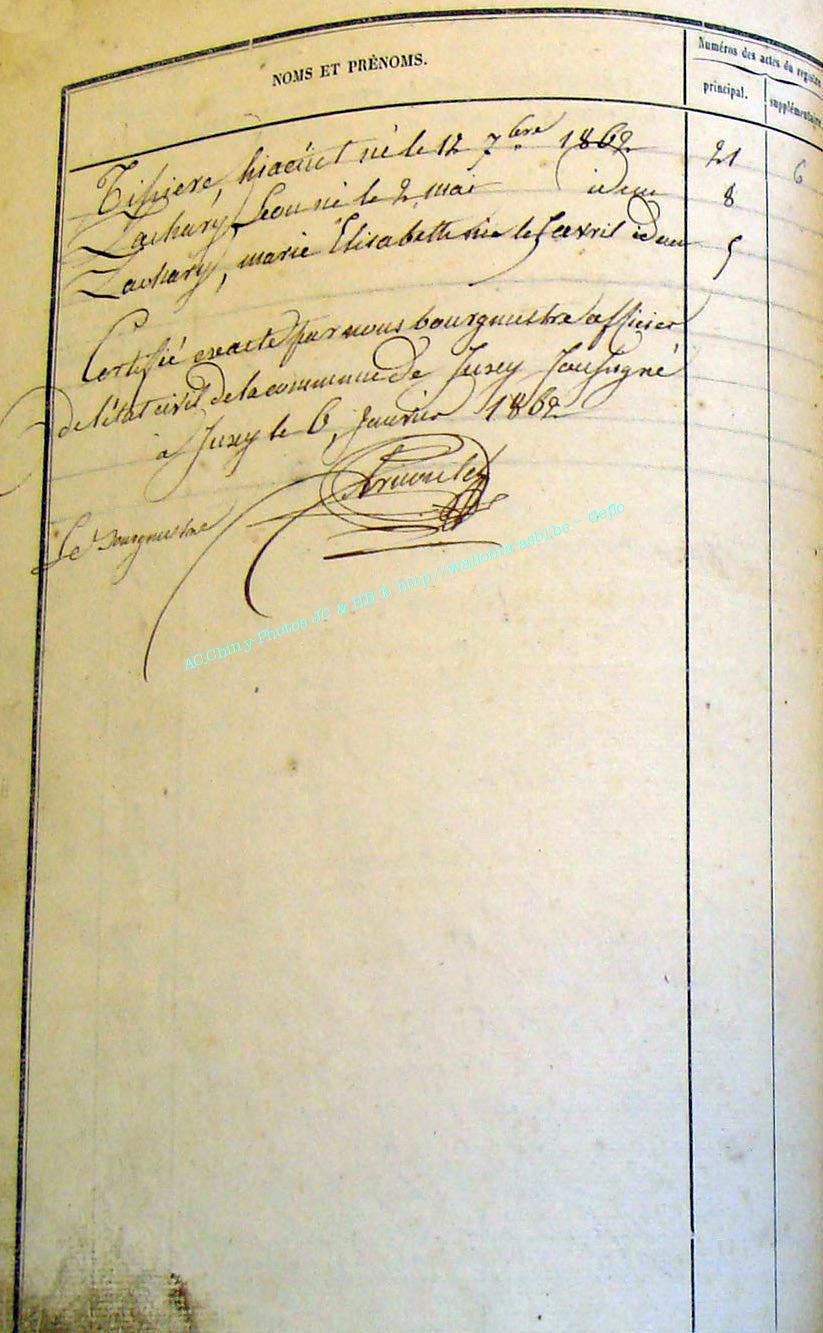 NOMS ET PRÉNOMS.
Numéros des actes du registre
principal.
supplémentaire.
Tissiere, hiacint né le 12 7bre 1862 21 6
Zachary Leon né le 2 mai idem 8
Zachary, marie Elisabette née le 7 avril idem 5
Certifié exacte par nous bourgmestre officier
de l'état civil de la commune de Juzey Soussigné
à Juzey le 6 Janvier 1862
Le Bourgmestre
AC.Chiny-Photos JC & HB ® http//wallonia-asbl.be - Geflo